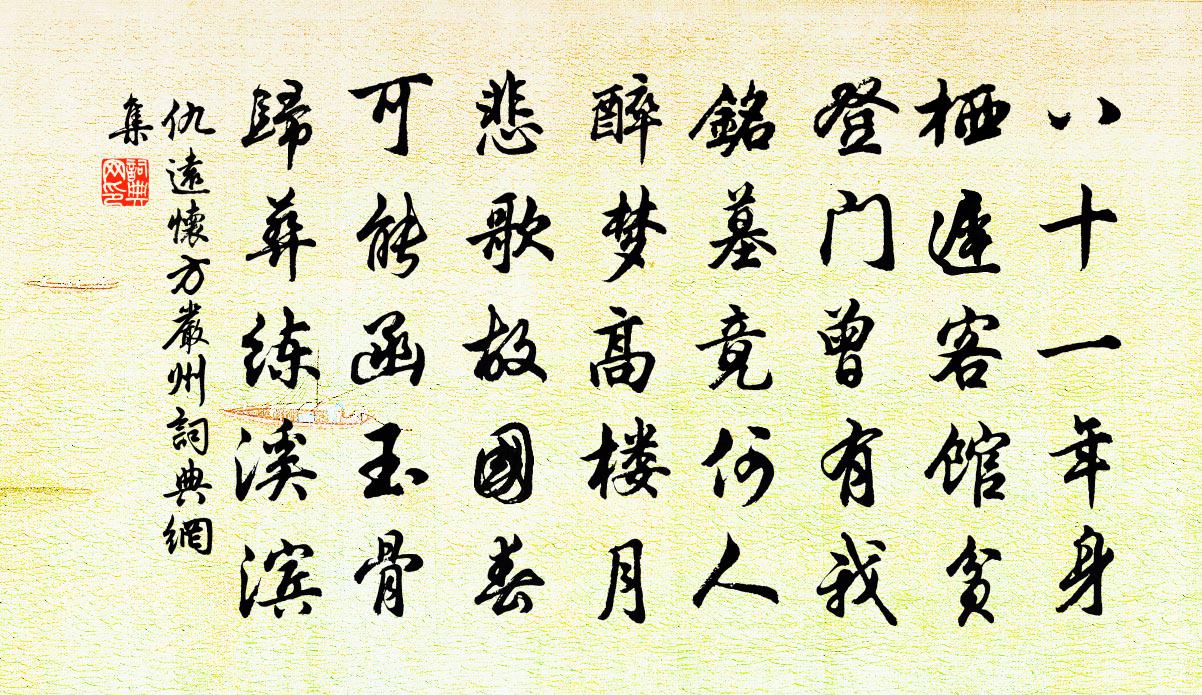 八十一年身
栖遲客馆貧
登门曾有我
銘墓竟何人
醉梦高楼月
悲歌故國春
可能函玉骨
歸葬练溪滨
仇遠懷方嚴州詞典網
集
詞典
网印